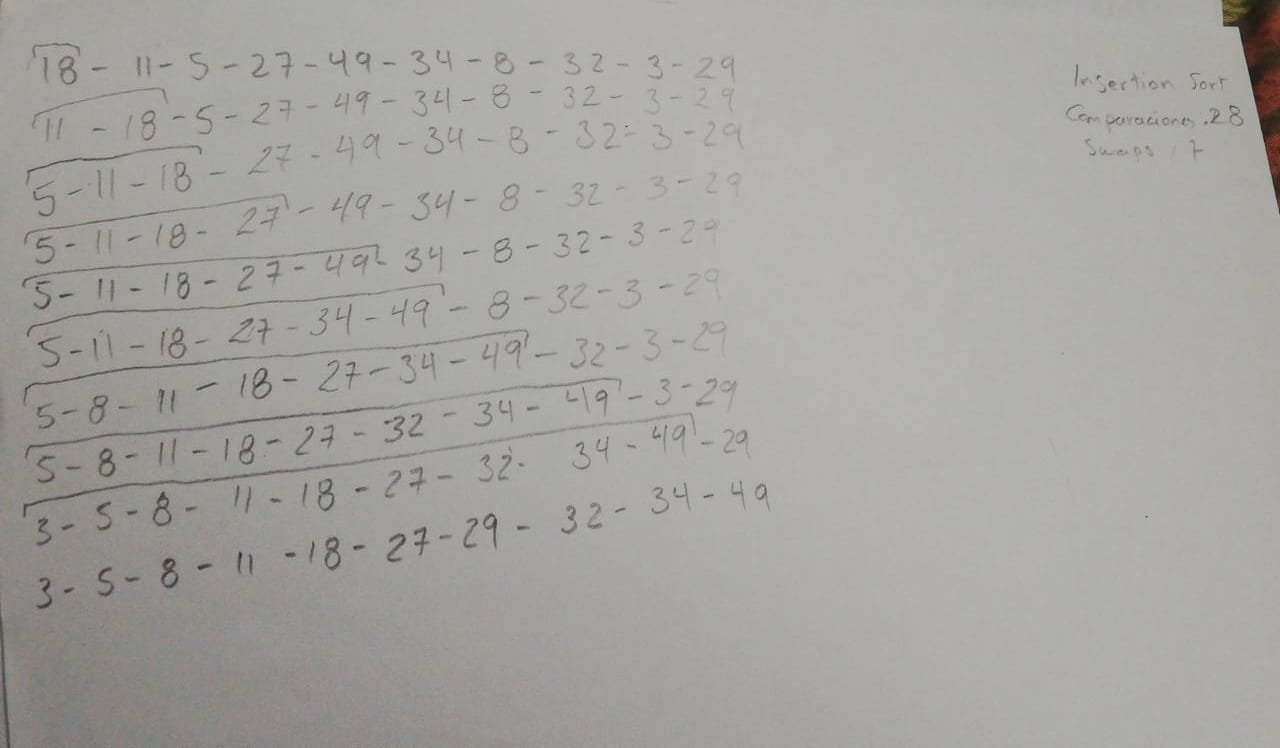 18 - 11 - 5 - 27 - 49 - 34 - 8 - 32 - 3 - 29
11 - 18 - 5 - 27 - 49 - 34 - 8 - 32 - 3 - 29
5 - 11 - 18 - 27 - 49 - 34 - 8 - 32 - 3 - 29
5 - 11 - 18 - 27 - 49 - 34 - 8 - 32 - 3 - 29
5 - 11 - 18 - 27 - 49 - 34 - 8 - 32 - 3 - 29
5 - 11 - 18 - 27 - 34 - 49 - 8 - 32 - 3 - 29
5 - 8 - 11 - 18 - 27 - 34 - 49 - 32 - 3 - 29
5 - 8 - 11 - 18 - 27 - 32 - 34 - 49 - 3 - 29
3 - 5 - 8 - 11 - 18 - 27 - 32 - 34 - 49 - 29
3 - 5 - 8 - 11 - 18 - 27 - 29 - 32 - 34 - 49
Insertion Sort
Comparaciones .28
Swaps : 7